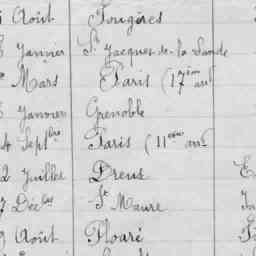 Août Fougères
Janvier St Jacques-de-la-Lande
Mars Paris (17ème arrt
Janvier Grenoble
4 Septbre Paris (11ème arrt
2 Juillet Dreux
7 Décbre St Maure
9 Août Ploaré